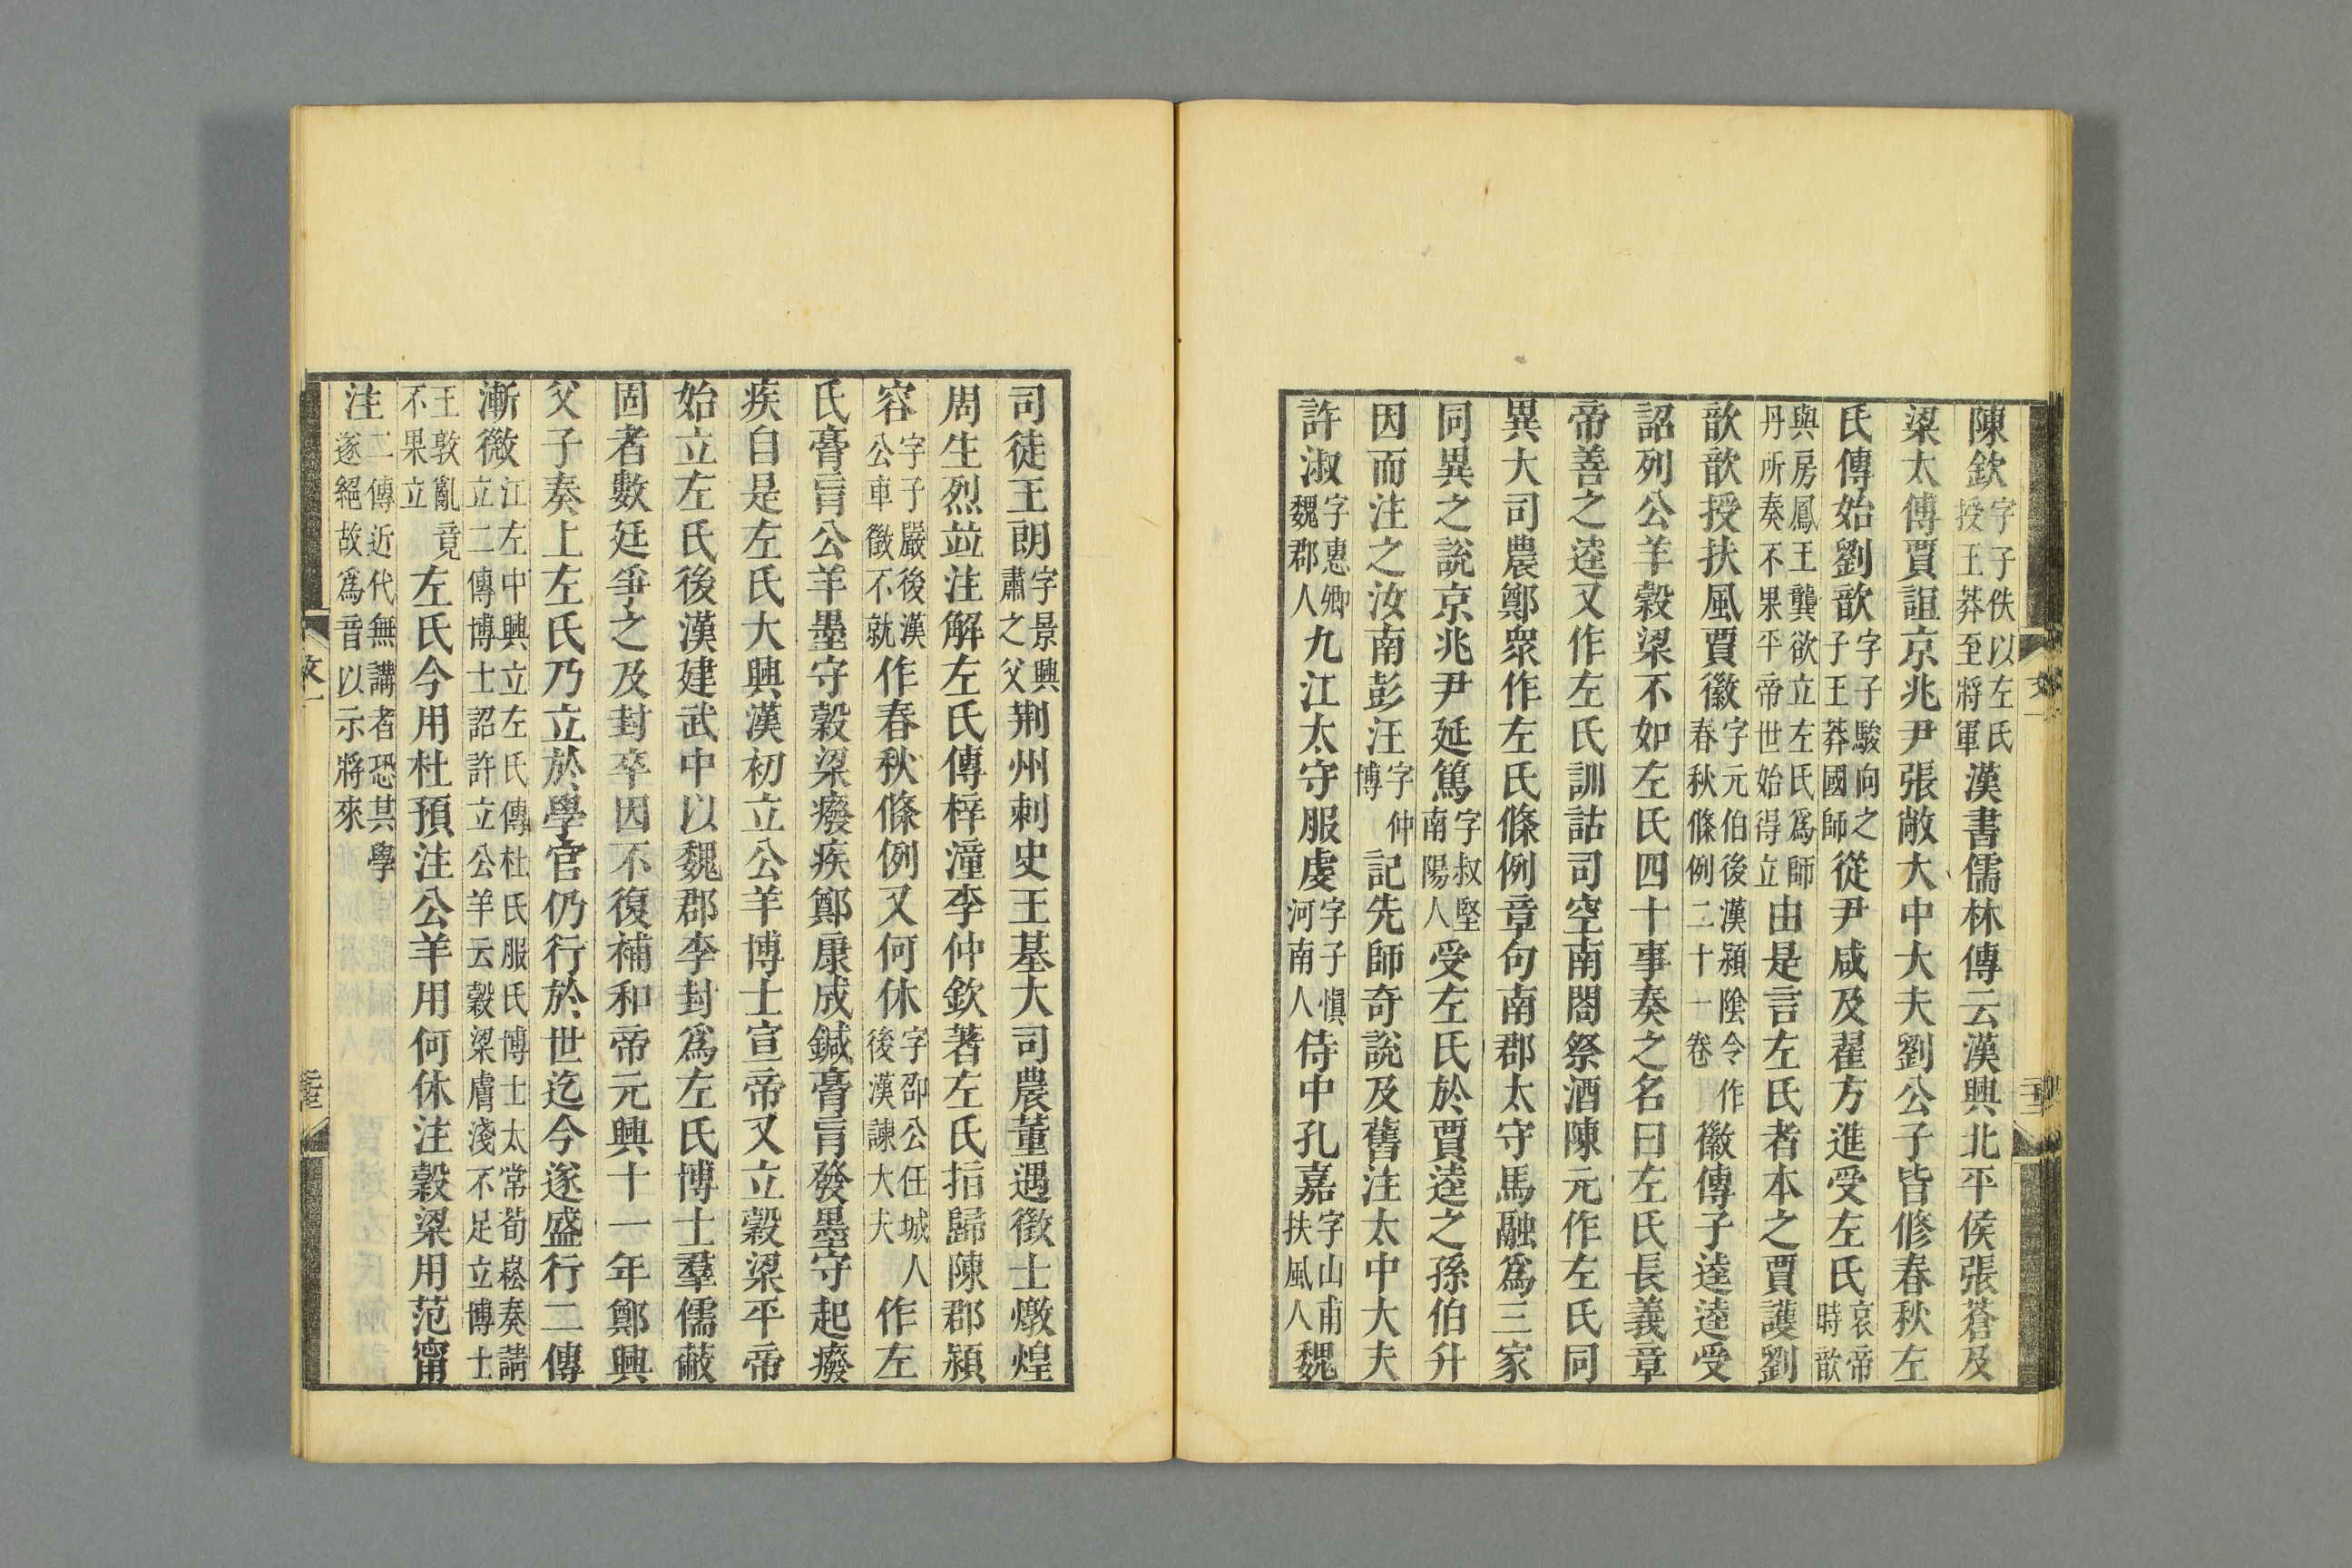 陳欽字子佚以左氏授王莽至將軍漢書儒林傳云漢興北平侯張蒼及
梁太傅賈誼京兆尹張敞大中大夫劉公子皆修春秋左
氏傳始劉歆字子駿向之子王莽國師從尹咸及翟方進受左氏哀帝時歆
與房鳳王龔欲立左氏爲師丹所奏不果平帝世始得立由是言左氏者本之賈護劉
歆歆授扶風賈徽字元伯後漢潁陰令作春秋條例二十一卷徽傳子逵逵受
詔列公羊穀梁不如左氏四十事奏之名曰左氏長義章
帝善之逵又作左氏訓詁司空南閤祭酒陳元作左氏同
異大司農鄭眾作左氏條例章句南郡太守馬融爲三家
同異之說京兆尹延篤字叔堅南陽人受左氏於賈逵之孫伯升
因而注之汝南彭汪字仲博記先師奇說及舊注太中大夫
許淑字惠卿魏郡人九江太守服虔字子慎河南人侍中孔嘉字山甫扶風人魏
司徒王朗字景興肅之父荆州刺史王基大司農董遇徵士燉煌
周生烈並注解左氏傳梓潼李仲欽著左氏指歸陳郡潁
容字子嚴後漢公車徵不就作春秋條例又何休字邵公任城人後漢諫大夫作左
氏膏肓公羊墨守穀梁癈疾鄭康成鍼膏肓發墨守起癈
疾自是左氏大興漢初立公羊博士宣帝又立穀梁平帝
始立左氏後漢建武中以魏郡李封爲左氏博士羣儒蔽
固者數廷爭之及封卒因不復補和帝元興十一年鄭興
父子奏上左氏乃立於學官仍行於世迄今遂盛行二傳
漸微江左中興立左氏傳杜氏服氏博士太常荀崧奏請立二傳博士詔許立公羊云穀梁膚淺不足立博士
王敦亂竟不果立左氏今用杜預注公羊用何休注穀梁用范甯
注二傳近代無講者恐其學遂絕故爲音以示將來